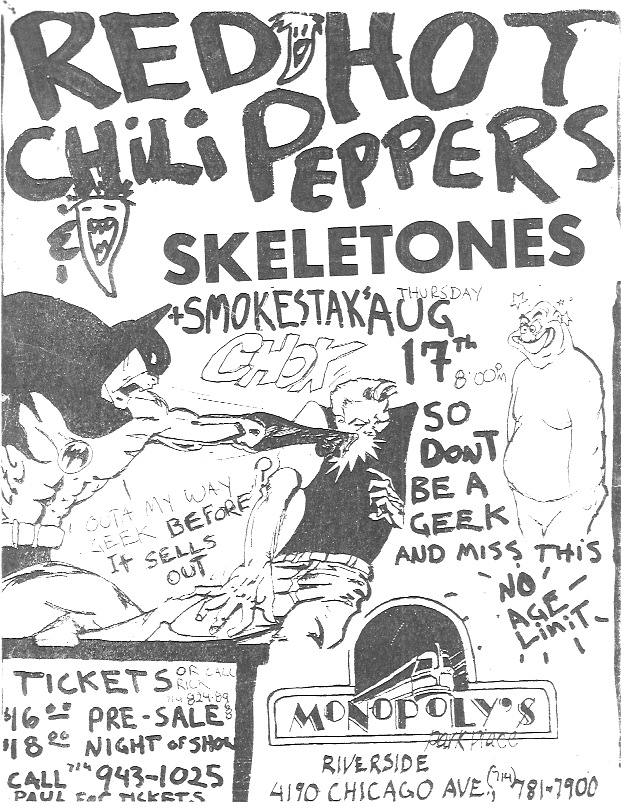 RED HOT
CHILI PEPPERS
&
SKELETONES
+SMOKESTAK'S
THURSDAY
AUG
17TH
8:00PM
CHOK
SO
DONT
BE A
GEEK
AND MISS THIS
OUTA MY WAY
GEEK BEFORE
IT SELLS
OUT
NO
AGE
LIMIT
TICKETS
OR CALL
RICK
$16.00 PRE-SALE
$18.00 NIGHT OF SHOW
CALL 714 943-1025
PAUL FOR TICKETS
MONOPOLY'S
park place
RIVERSIDE
4190 CHICAGO AVE. (714) 781-7900